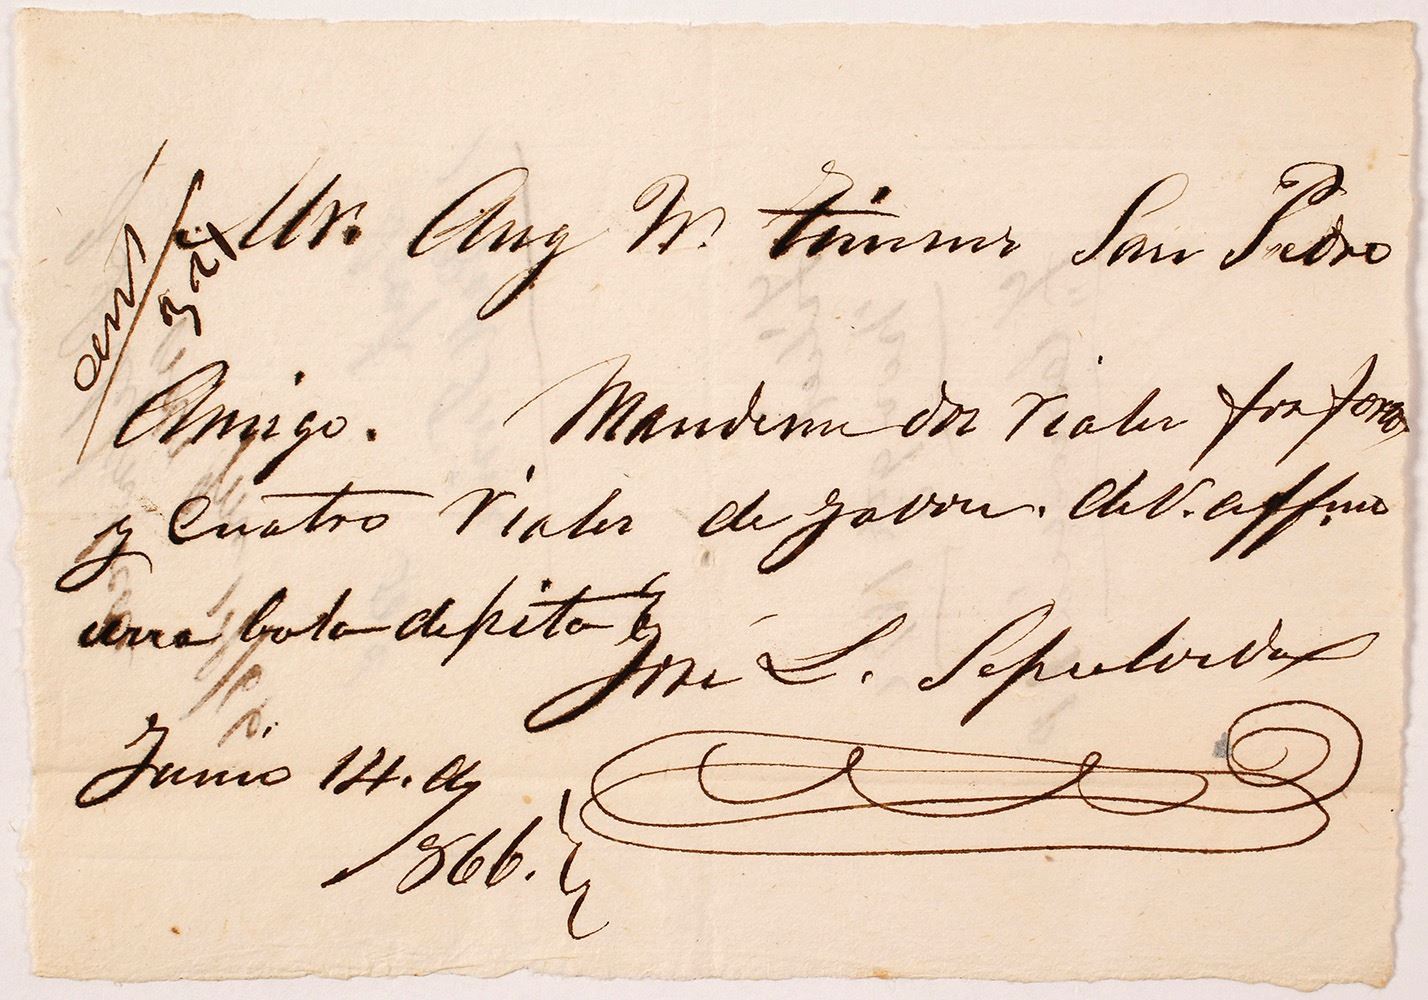 Mr. Aug W. Timms San Pedro
Amigo. Mandeme dos riales fosforos
y cuatro riales de javon. de V. affmo
una bola de pita
José L. Sepulveda
Junio 14. de
1866.